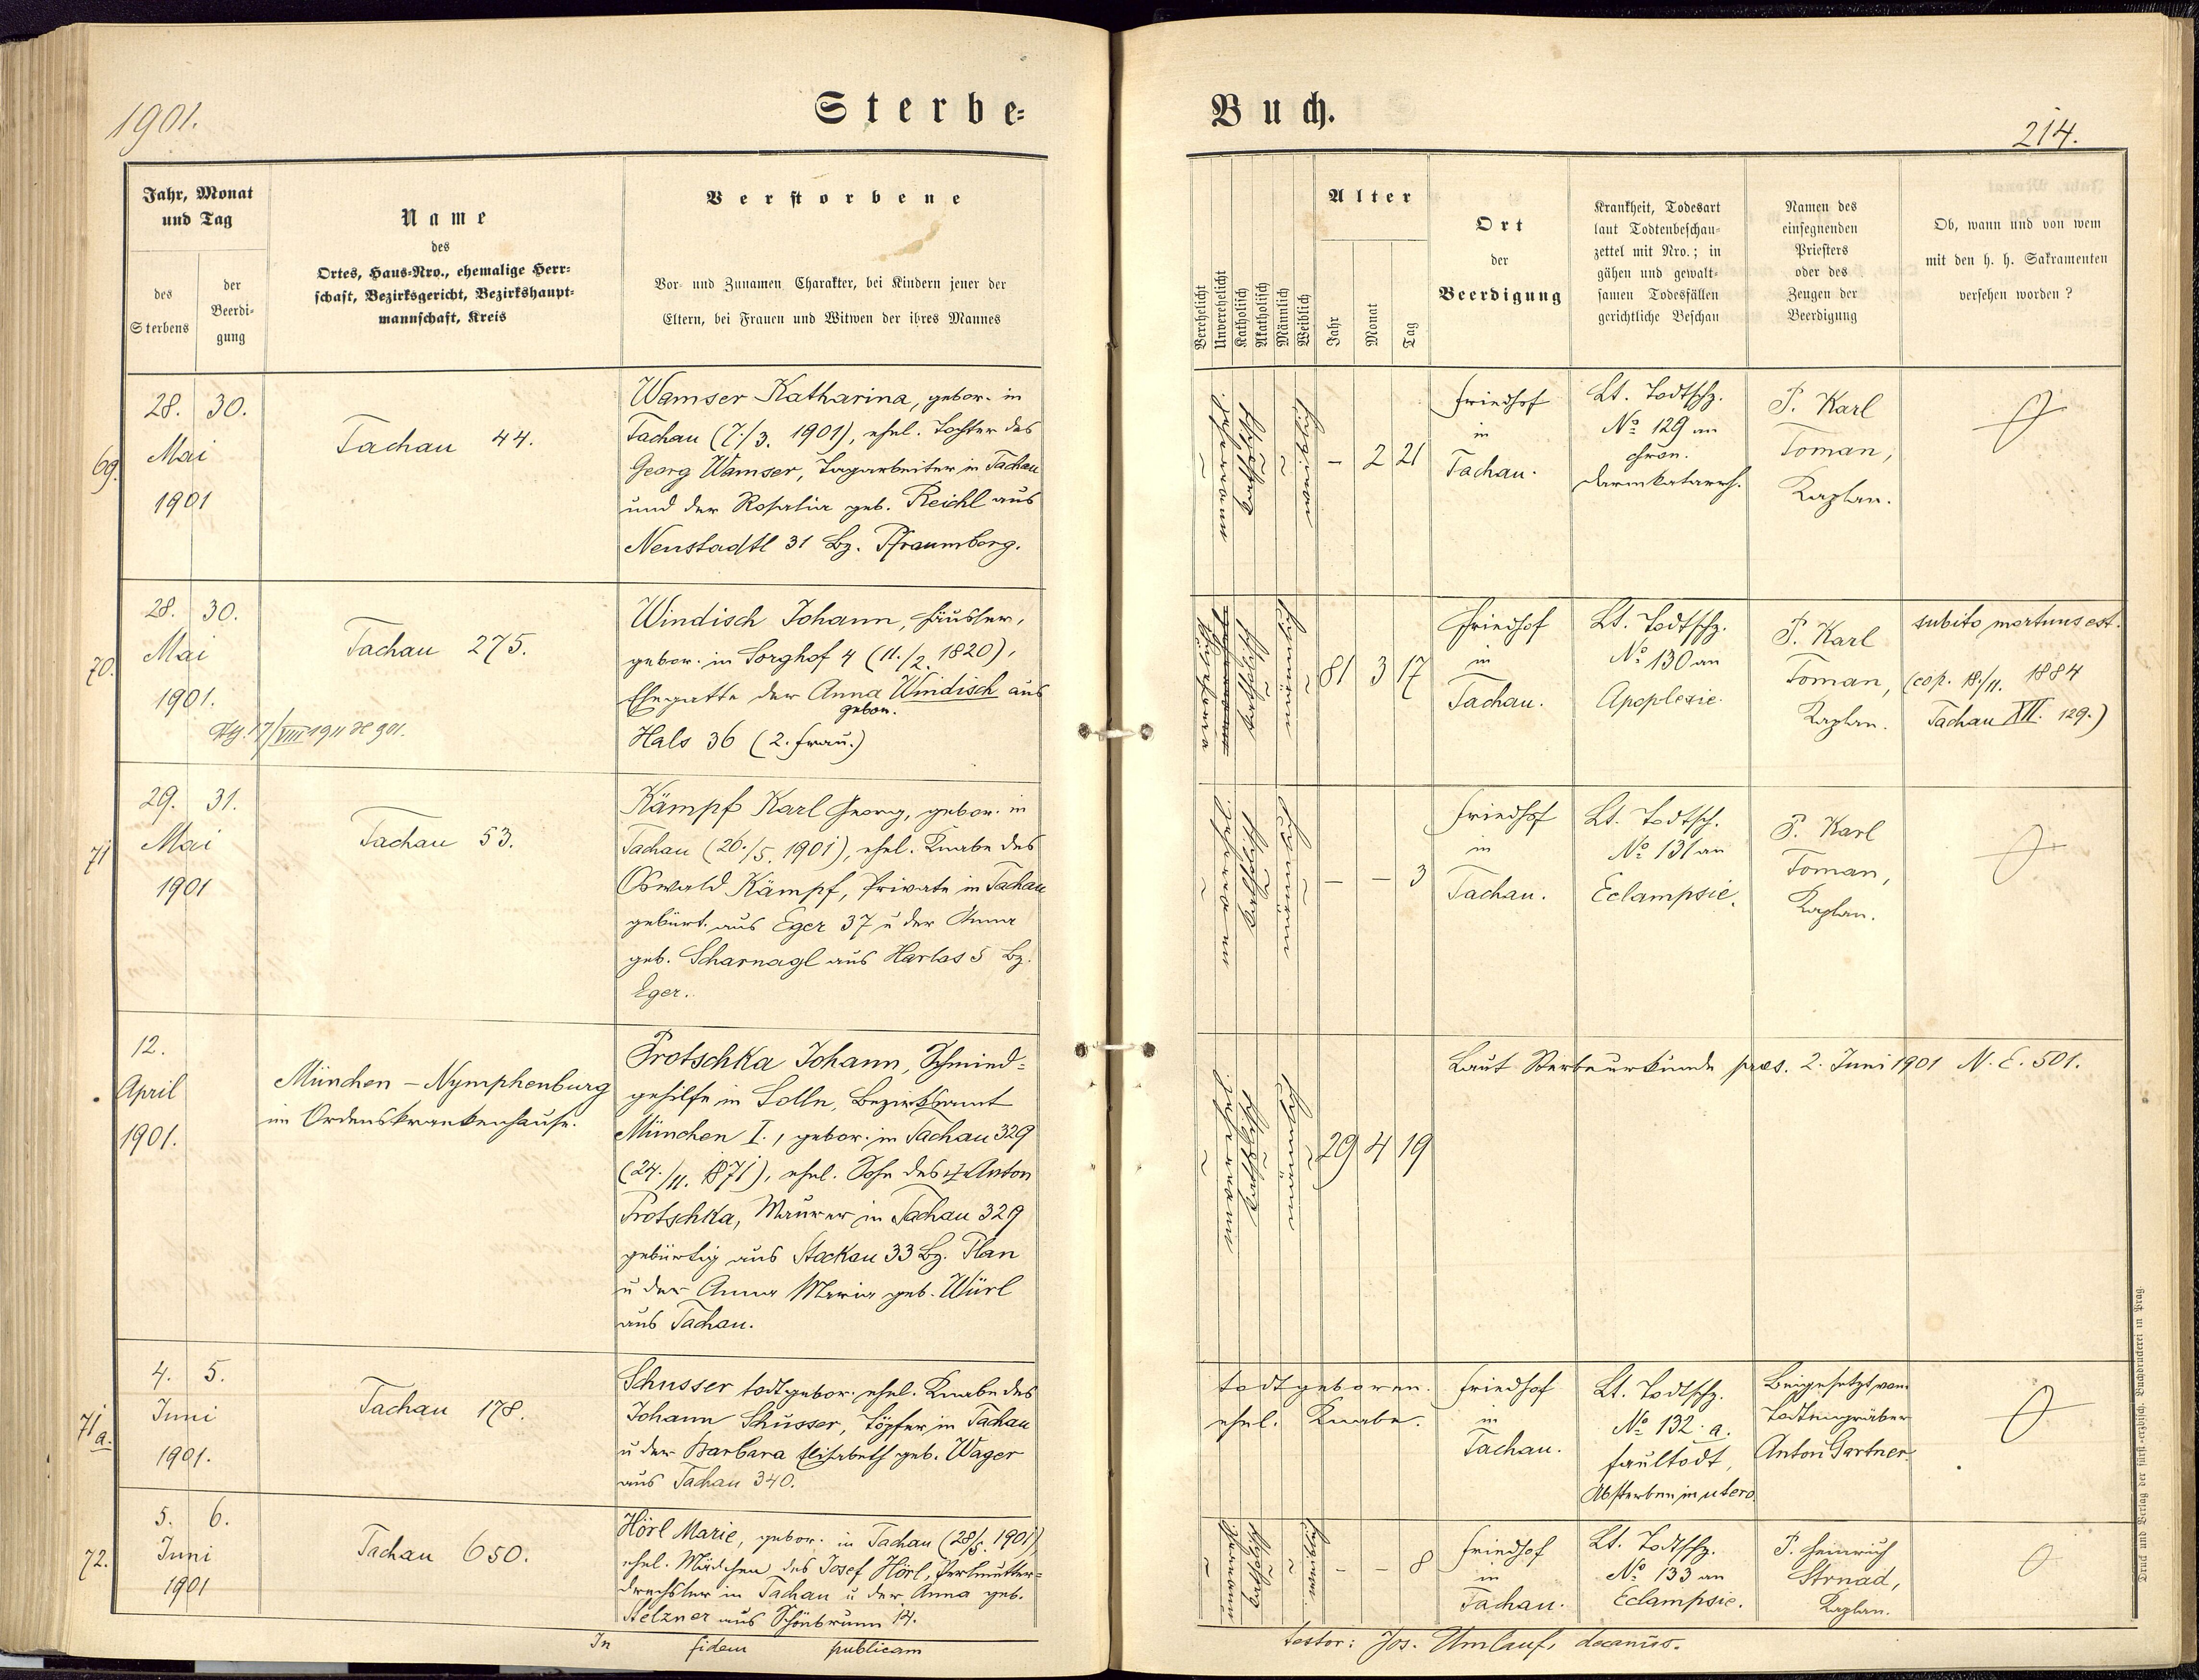 1901.
Sterbe-
Jahr, Monat
und Tag
des
Sterbens
der
Beerdi-
gung
Name
des
Ortes, Haus-Nro., ehemalige Herr-
schaft, Bezirksgericht, Bezirkshaupt-
mannschaft, Kreis
Verstorbene
Vor- und Zunamen, Charakter, bei Kindern jener der
Eltern, bei Frauen und Witwen der ihres Mannes
69.
28. 30.
Mai
1901
Tachau 44.
Wamser Katharina, gebor. in
Tachau (7./3. 1901), ehel. Tochter des
Georg Wamser, Tagarbeiter in Tachau
und der Rosalia geb. Reichl aus
Neustadtl 31 Bz. Pfraumberg.
70.
28. 30.
Mai
1901.
17/VIII 1911 901.
Tachau 275.
Windisch Johann, Häusler,
gebor. in Sorghof 4 (11./2. 1820),
Ehegatte der Anna Windisch aus
gebor.
Hals 36 (2. Frau.)
71
29. 31.
Mai
1901
Tachau 53.
Kämpf Karl Georg, gebor. in
Tachau (26./5. 1901), ehel. Knabe des
Oswald Kämpf, Private in Tachau
gebürt. aus Eger 37 u der Anna
geb. Scharnagl aus Harlas 5 Bz.
Eger.
12.
April
1901.
München – Nymphenburg
im Ordenskrankenhause.
Protschka Johann, Schmied-
gehilfe in Solln, Bezirksamt
München I., gebor. in Tachau 329
(24./11. 1871), ehel. Sohn des † Anton
Protschka, Maurer in Tachau 329
gebürtig aus Stockau 33 Bz. Plan
u der Anna Maria geb. Würl
aus Tachau.
71 a.
4. 5.
Juni
1901.
Tachau 178.
Schusser todtgebor. ehel. Knabe des
Johann Schusser, Töpfer in Tachau
u der Barbara Elisabeth geb. Wager
aus Tachau 340.
72.
5. 6.
Juni
1901
Tachau 650.
Hörl Marie, gebor. in Tachau (28/5. 1901)
ehel. Mädchen des Josef Hörl, Perlmutter-
drechsler in Tachau u der Anna geb.
Stelzner aus Schönbrunn 14.
In fidem publicam
Buch.
214.
Verehelicht
Unverehelicht
Katholisch
Akatholisch
Männlich
Weiblich
Alter
Jahr
Monat
Tag
Ort
der
Beerdigung
Krankheit, Todesart
laut Todtenbeschau-
zettel mit Nro.; in
gähen und gewalt-
samen Todesfällen
gerichtliche Beschau
Namen des
einsegnenden
Priesters
oder des
Zeugen der
Beerdigung
Ob, wann und von wem
mit den h. h. Sakramenten
versehen worden?
katholisch
weiblich
– 2 21
Friedhof
in
Tachau.
Lt. Todtschz.
No 129 an
chron.
Darmkatarrh.
P. Karl
Toman,
Kaplan.
katholisch
männlich
81 3 17
Friedhof
in
Tachau.
Lt. Todtschz.
No 130 an
Apoplexie.
P. Karl
Toman,
Kaplan.
subito mortuus est.
(cop. 18./11. 1884
Tachau XII. 129.)
katholisch
männlich
– – 3
Friedhof
in
Tachau.
Lt. Todtsch.
No 131 an
Eclampsie.
P. Karl
Toman,
Kaplan.
katholisch
männlich
29 4 19
Laut Sterbeurkunde praes. 2. Juni 1901 N. E. 501.
todtgeboren.
ehel. Knabe.
Friedhof
in
Tachau.
Lt. Todtschz.
No 132 a.
faultodt,
Absterben in utero.
Beigesetzt vom
Todtengräber
Anton Gartner.
katholisch
weiblich
– – 8
Friedhof
in
Tachau.
Lt. Todtschz.
No 133 an
Eclampsie.
P. Heinrich
Strnad,
Kaplan.
testor: Jos. Umlauf, decanus.
Druck und Verlag der fürst-erzbisch. Buchdruckerei in Prag.